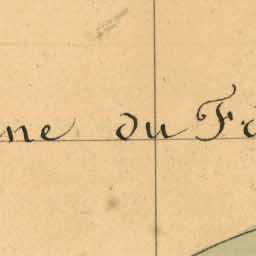 ne du Fo